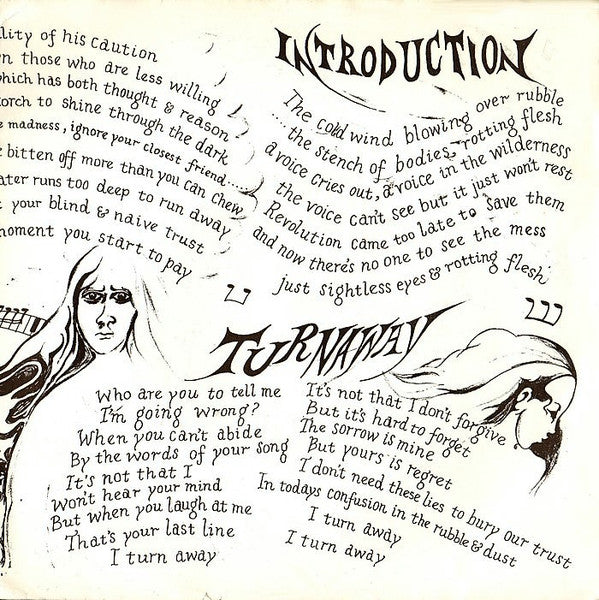 lity of his caution
n those who are less willing
hich has both thought & reason
orch to shine through the dark
e madness, ignore your closest friend.....
e bitten off more than you can chew
ater runs too deep to run away
your blind & naive trust
moment you start to pay
INTRODUCTION
The cold wind blowing over rubble
.... the stench of bodies, rotting flesh
a voice cries out, a voice in the wilderness
the voice can't see but it just won't rest
Revolution came too late to save them
and now there's no one to see the mess
just sightless eyes & rotting flesh
TURNAWAY
Who are you to tell me
I'm going wrong?
When you can't abide
By the words of your song
It's not that I
Won't hear your mind
But when you laugh at me
That's your last line
I turn away
It's not that I don't forgive
But it's hard to forget
The sorrow is mine
But yours is regret
I don't need these lies to bury our trust
In todays confusion in the rubble & dust
I turn away
I turn away